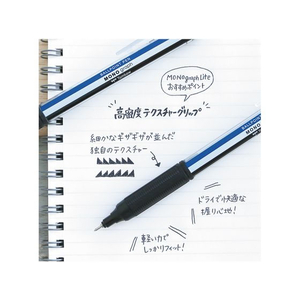 BALLPOINT PEN
MONO graph
MONOgraph Lite
おすすめポイント
高密度テクスチャーグリップ
細かなギザギザが並んだ
独自のテクスチャー
ドライで快適な
握り心地!
軽い力で
しっかりフィット!